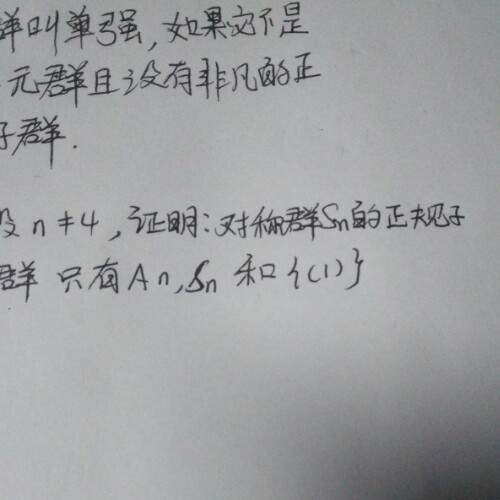 群叫单强,如果它不是
元群且没有非凡的正
子群.
设 n≠4,证明:对称群Sn的正规子
群 只有An,Sn 和{(1)}